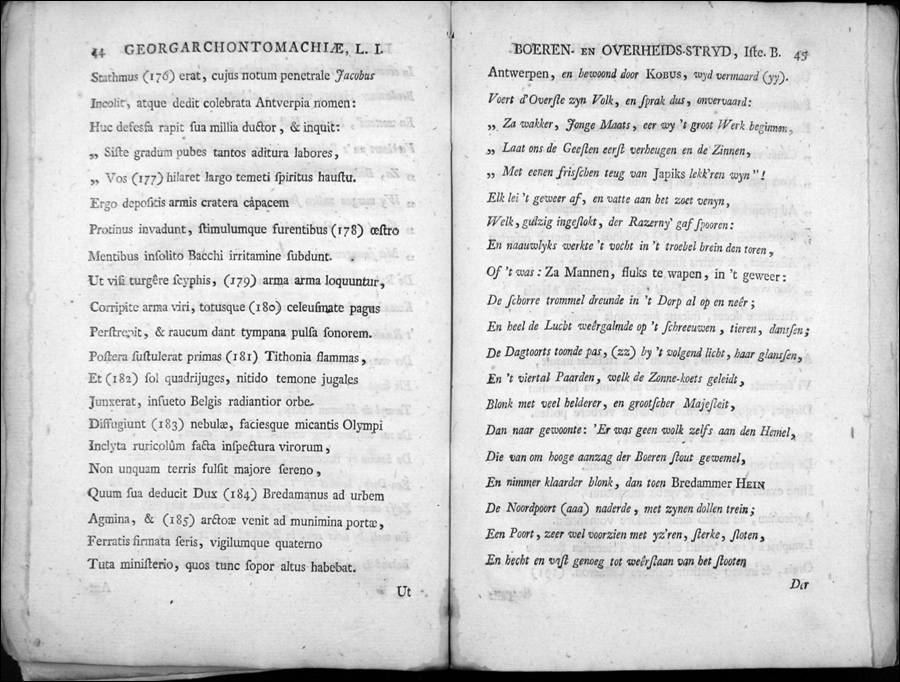 44 GEORGARCHONTOMACHIÆ, L. I.
Stathmus (176) erat, cujus notum penetrale Jacobus
Incolit, atque dedit celebrata Antverpia nomen:
Huc defeſſa rapit ſua millia ductor, & inquit:
„ Siſte gradum pubes tantos aditura labores,
„ Vos (177) hilaret largo temeti ſpiritus hauſtu.
Ergo depoſitis armis cratera capacem
Protinus invadunt, ſtimulumque furentibus (178) œſtro
Mentibus inſolito Bacchi irritamine ſubdunt.
Ut viſi turgêre ſcyphis, (179) arma arma loquuntur,
Corripite arma viri, totusque (180) celeuſmate pagus
Perſtrepit, & raucum dant tympana pulſa ſonorem.
Poſtera ſuſtulerat primas (181) Tithonia flammas,
Et (182) ſol quadrijuges, nitido temone jugales
Junxerat, inſueto Belgis radiantior orbe.
Diffugiunt (183) nebulæ, faciesque micantis Olympi
Inclyta ruricolûm facta inſpectura virorum,
Non unquam terris fulſit majore ſereno,
Quum ſua deducit Dux (184) Bredamanus ad urbem
Agmina, & (185) arctoæ venit ad munimina portæ,
Ferratis firmata ſeris, vigilumque quaterno
Tuta miniſterio, quos tunc ſopor altus habebat.
Ut
BOEREN- EN OVERHEIDS-STRYD, Iſte. B. 45
Antwerpen, en bewoond door KOBUS, wyd vermaard (yy).
Voert d'Overſte zyn Volk, en ſprak dus, onvervaard:
„ Za wakker, Jonge Maats, eer wy 't groot Werk beginnen,
„ Laat ons de Geeſten eerſt verheugen en de Zinnen,
„ Met eenen friſſchen teug van Japiks lekk'ren wyn"!
Elk lei 't geweer af, en vatte aan het zoet venyn,
Welk, gulzig ingeſlokt, der Razerny' gaf ſpooren:
En naauwlyks werkte 't vocht in 't troebel brein den toren,
Of 't was: Za Mannen, fluks te wapen, in 't geweer:
De ſchorre trommel dreunde in 't Dorp al op en neêr;
En heel de Lucht weêrgalmde op 't ſchreeuwen, tieren, danſſen;
De Dagtoorts toonde pas, (zz) by 't volgend licht, haar glanſſen,
En 't viertal Paarden, welk de Zonne-koets geleidt,
Blonk met veel helderer, en grootſcher Majeſteit,
Dan naar gewoonte: 'Er was geen wolk zelfs aan den Hemel,
Die van om hooge aanzag der Boeren ſtout gewemel,
En nimmer klaarder blonk, dan toen Bredammer HEIN
De Noordpoort (aaa) naderde, met zynen dollen trein;
Een Poort, zeer wel voorzien met yz'ren, ſterke, ſloten,
En hecht en vaſt genoeg tot weêrſtaan van het ſlooten
Der